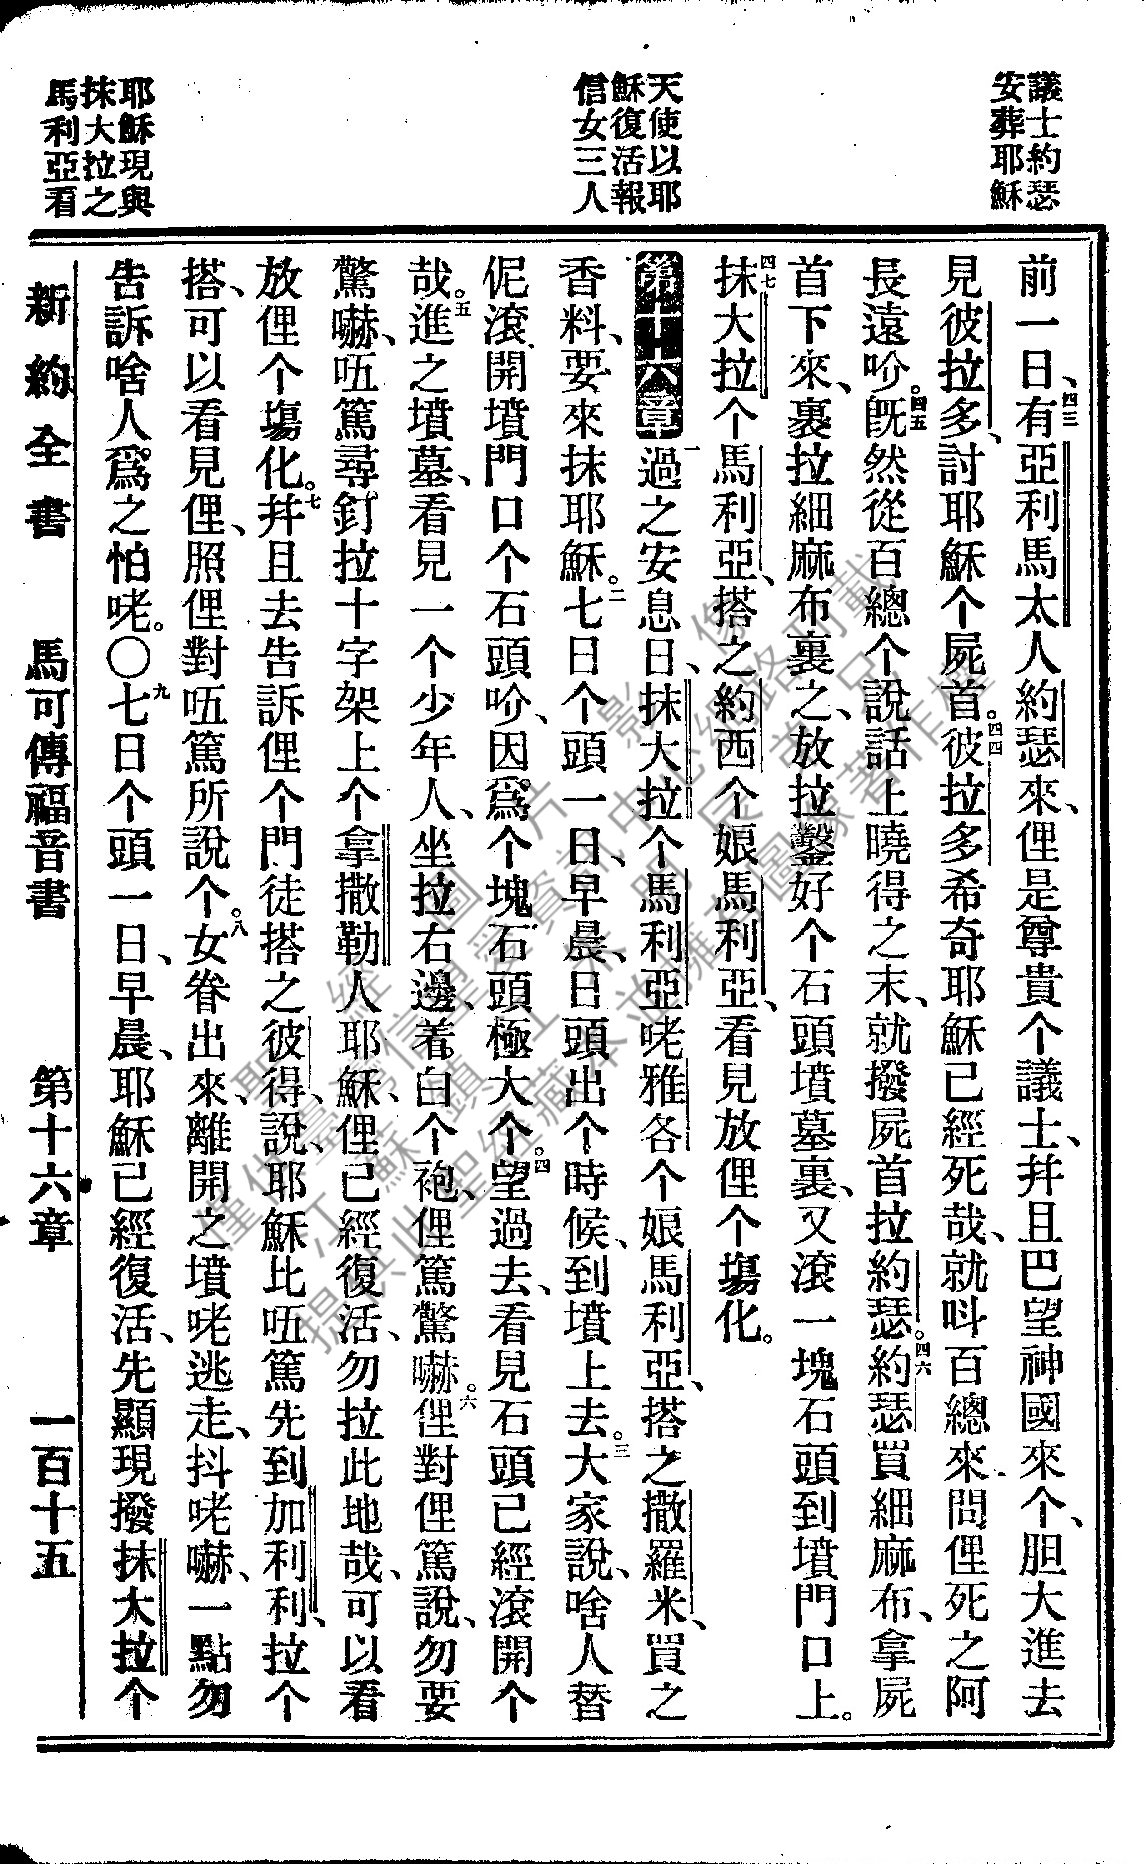 議士約瑟
安葬耶穌
天使以耶
穌復活報
信女三人
耶穌現與
抹大拉之
馬利亞看
前一日、四三有亞利馬太人約瑟來、俚是尊貴个議士、幷且巴望神國來个、胆大進去
見彼拉多、討耶穌个屍首。四四彼拉多希奇耶穌已經死哉、就呌百總來問俚死之阿
長遠吤。四五旣然從百總个說話上曉得之末、就撥屍首拉約瑟。四六約瑟買細麻布、拿屍
首下來、裹拉細麻布裏之、放拉鑿好个石頭墳墓裏、又滚一塊石頭到墳門口上。
四七抹大拉个馬利亞、搭之約西个娘馬利亞、看見放俚个塲化。
第十六章 一過之安息日、抹大拉个馬利亞咾雅各个娘馬利亞、搭之撒羅米、買之
香料、要來抹耶穌。二七日个頭一日、早晨、日頭出个時候、到墳上去。三大家說、啥人替
伲滚開墳門口个石頭吤、因爲个塊石頭極大个。四望過去、看見石頭已經滚開个
哉。五進之墳墓、看見一个少年人、坐拉右邊、着白个袍、俚篤驚嚇。六俚對俚篤說、勿要
驚嚇、㕶篤尋釘拉十字架上个拿撒勒人耶穌、俚已經復活、勿拉此地哉、可以看
放俚个塲化。七幷且去告訴俚个門徒搭之彼得、說、耶穌比㕶篤先到加利利、拉个
搭、可以看見俚、照俚對㕶篤所說个。八女眷出來、離開之墳咾逃走、抖咾嚇、一點勿
告訴啥人、爲之怕咾。〇九七日个頭一日、早晨、耶穌已經復活、先顯現撥抹大拉个
新約全書 馬可傳福音書 第十六章 一百十五